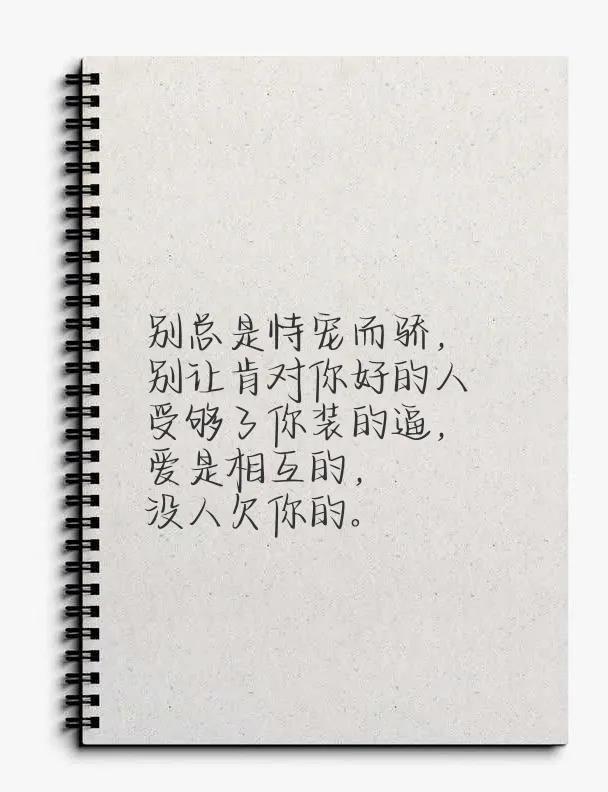 别总是恃宠而骄，
别让肯对你好的人
受够了你装的逼，
爱是相互的，
没人欠你的。